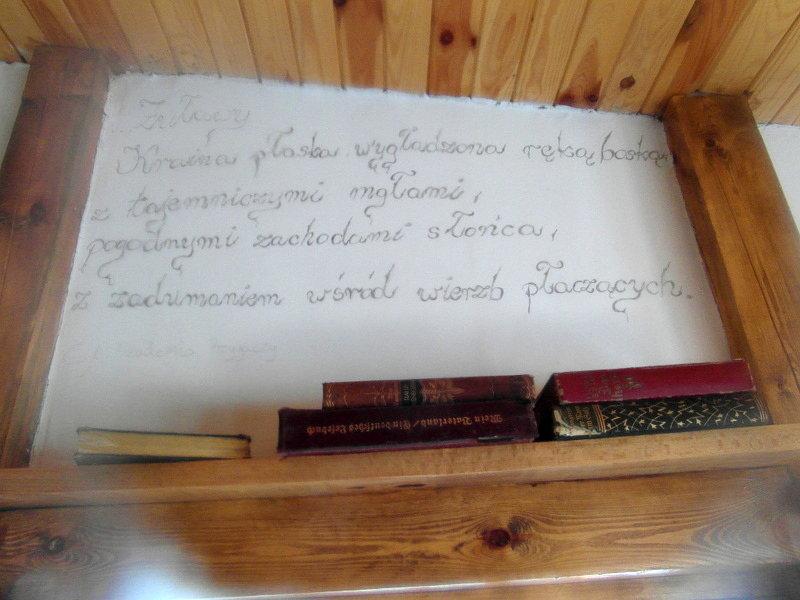 Żuławy
Kraina płaska wygładzona ręką boską,
z tajemniczymi mgłami,
pogodnymi zachodami słońca,
z zadumaniem wśród wierzb płaczących.
Mein Vaterland / Ein deutsches Lesebuch